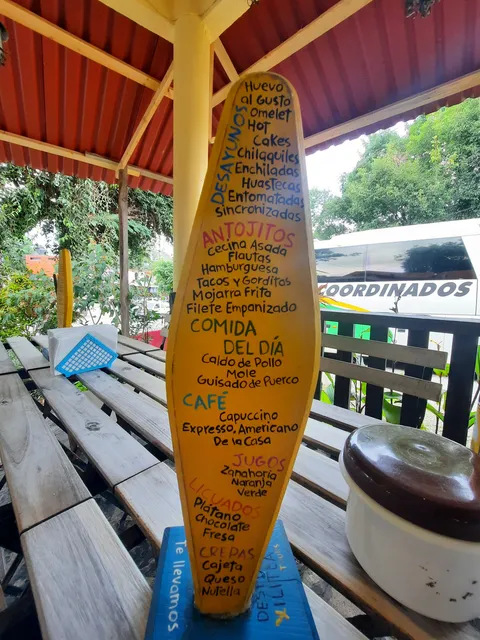 DESAYUNOS
Huevo
al Gusto
Omelet
Hot
Cakes
Chilaquiles
Enchiladas
Huastecas
Entomatadas
Sincronizadas
ANTOJITOS
Cecina Asada
Flautas
Hamburguesa
Tacos y Gorditas
Mojarra Frita
Filete Empanizado
COMIDA
DEL DÍA
Caldo de Pollo
Mole
Guisado de Puerco
CAFÉ
Capuccino
Expresso, Americano
De la Casa
JUGOS
Zanahoria
Naranja
Verde
LICUADOS
Plátano
Chocolate
Fresa
CREPAS
Cajeta
Queso
Nutella
Te llevamos
XILITLA
COORDINADOS